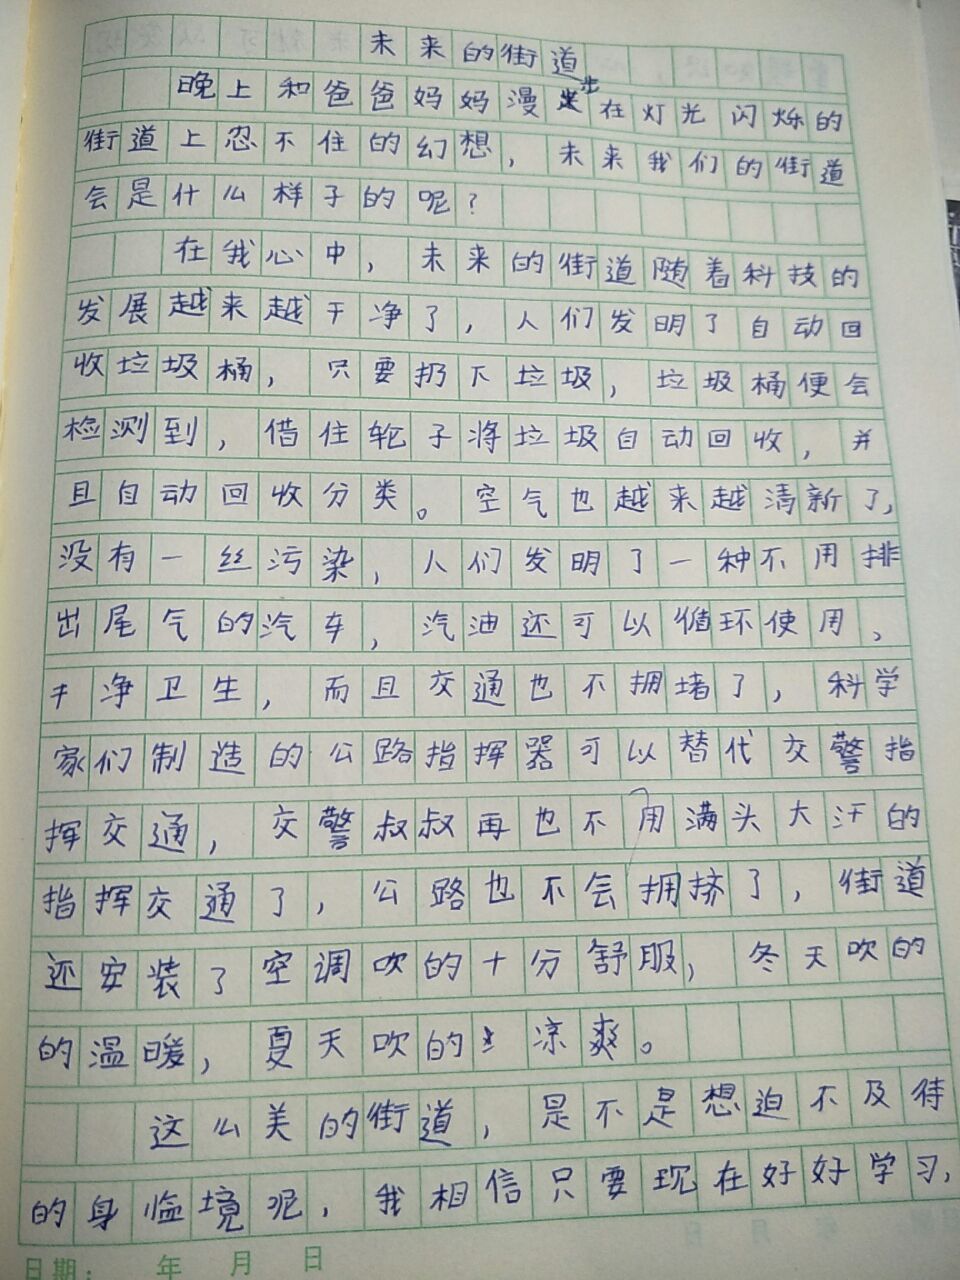 未来的街道
晚上和爸爸妈妈漫步在灯光闪烁的
街道上忍不住的幻想，未来我们的街道
会是什么样子的呢？
在我心中，未来的街道随着科技的
发展越来越干净了，人们发明了自动回
收垃圾桶，只要扔下垃圾，垃圾桶便会
检测到，借住轮子将垃圾自动回收，并
且自动回收分类。空气也越来越清新了，
没有一丝污染，人们发明了一种不用排
出尾气的汽车，汽油还可以循环使用，
干净卫生，而且交通也不拥堵了，科学
家们制造的公路指挥器可以替代交警指
挥交通，交警叔叔再也不用满头大汗的
指挥交通了，公路也不会拥挤了，街道
还安装了空调吹的十分舒服，冬天吹的
的温暖，夏天吹的凉爽。
这么美的街道，是不是想迫不及待
的身临境呢，我相信只要现在好好学习，
日期：　年　月　日